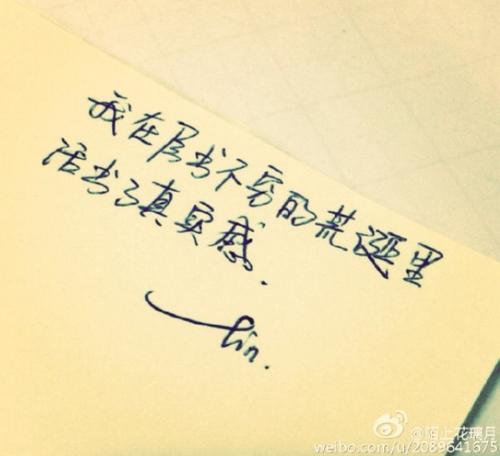 我在层出不穷的荒诞里
活出了真实感.
—lin.
@陌上花璃月
weibo.com/u/2089641675